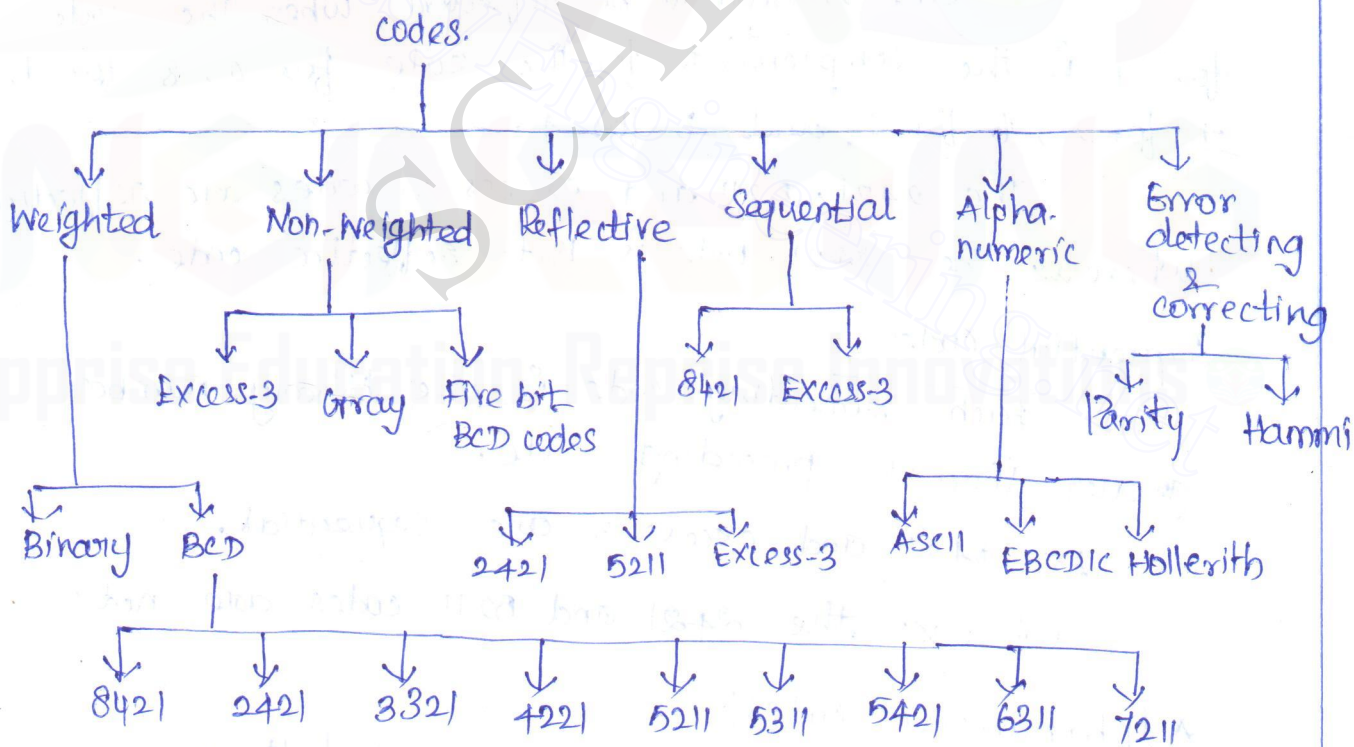 codes.
Weighted Non-Weighted Reflective Sequential Alpha-numeric Error detecting & correcting
Excess-3 Gray Five bit BCD codes
8421 Excess-3
Parity Hammi
Binary BCD
2421 5211 Excess-3
ASCII EBCDIC Hollerith
8421 2421 3321 4221 5211 5311 5421 6311 7211